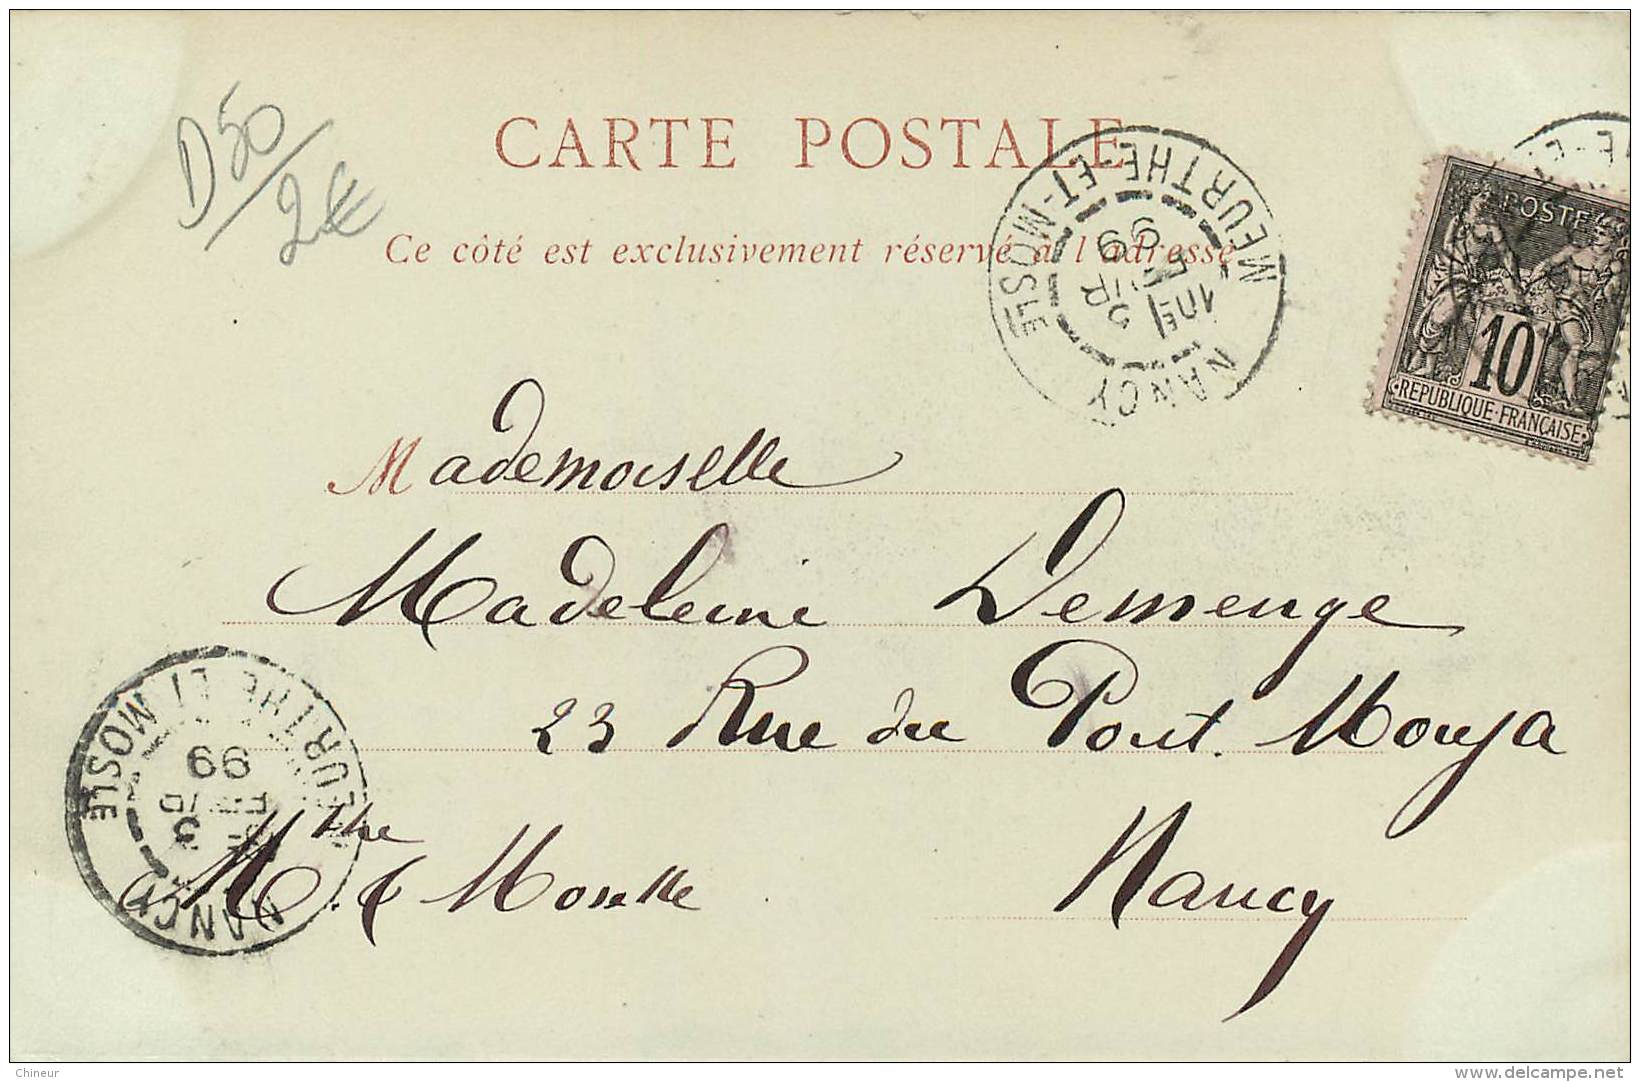 D50
2€
CARTE POSTALE
Ce côté est exclusivement réservé à l'adresse
NANCY MEURTHE-ET-MOSLE
10E
2
99
POSTE
10
REPUBLIQUE·FRANÇAISE
Mademoiselle
Madeleine Demenge
23 Rue du Pont. Mouja
Mthe. & Moselle Nancy
NANCY MEURTHE ET MOSLE
3
99
Chineur
www.delcampe.net